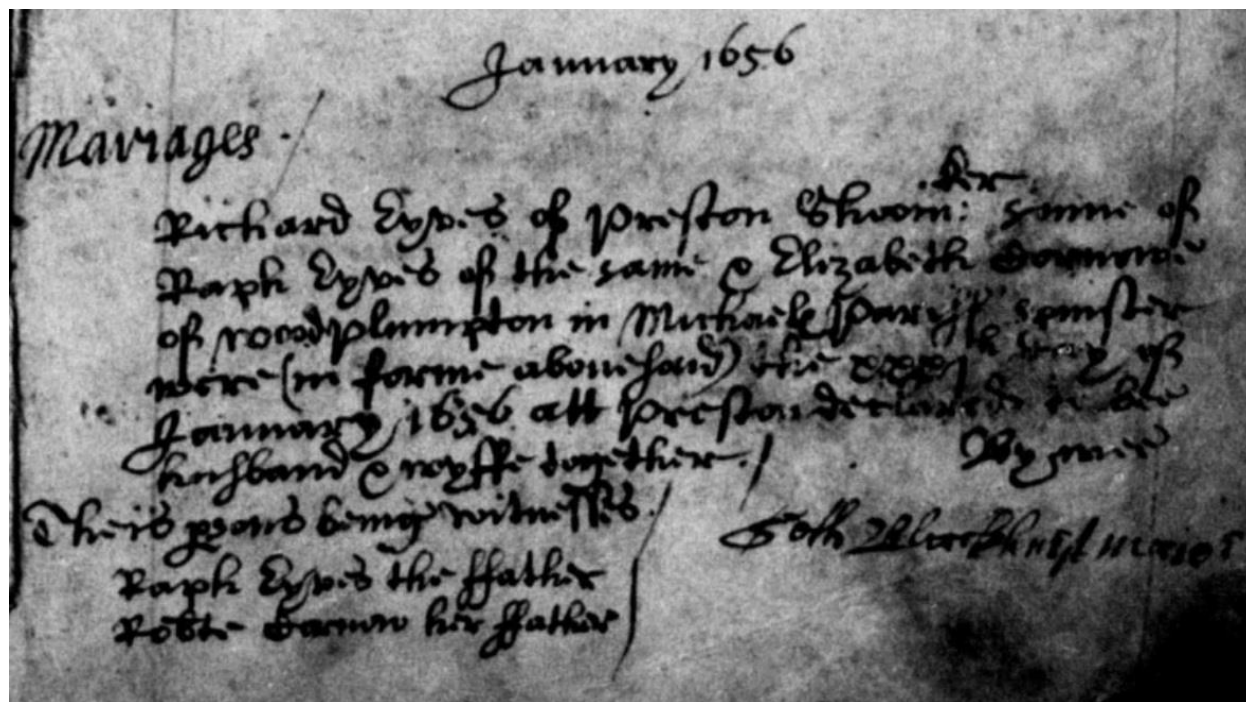 January 1656
Mariages
ker
Richard Eyves of Preston sonne of
Raph Eyves of the same & Elizabeth
of woodplumpton in Michaell spinster
were (in forme abouesaid) the xxxjth day of
January 1656 att Preston declared to bee
husband & wyffe together. By mee
Theis psons being witnesses.
Raph Eyves the ffather
Robte her ffather